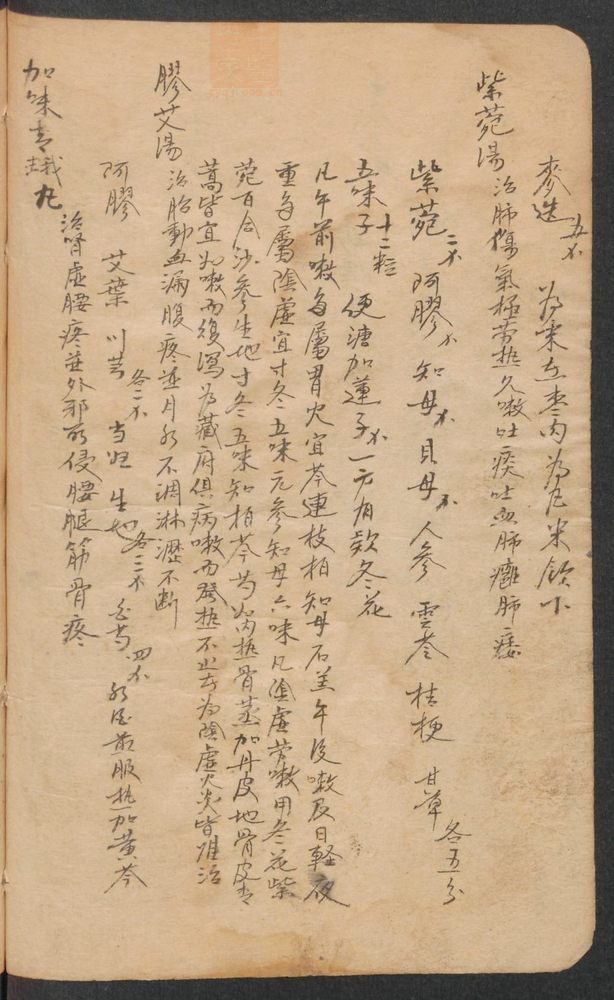 麥迭五不 為末煮枣肉為丸米飲下
紫菀湯 治肺傷氣極劳热久嗽吐痰吐血肺癰肺痿
紫菀二不 阿膠不 知母不 貝母不 人參 雲苓 桔梗 甘草各五分
五味子十二粒 便溏加蓮子不 一方有欵冬花
凡午前嗽多屬胃火宜芩連枝柏知母石羔午後嗽及日輕夜
重多屬陰虛宜寸冬五味元參知母六味凡陰虛劳嗽用冬花紫
菀百合沙參生地寸冬五味知柏芩芍為内热骨蒸加丹皮地骨皮青
蒿皆宜如嗽而復瀉為藏府俱病嗽而發热不止去為陰虛火炎皆难治
膠艾湯 治胎動血漏腹疼並月水不調淋瀝不断
阿膠 艾葉 川芎各二不 当归 生地各三不 白芍四不 水酒煎服热加黄芩
加味青娥丸 治腎虛腰疼並外邪所侵腰腿筋骨疼